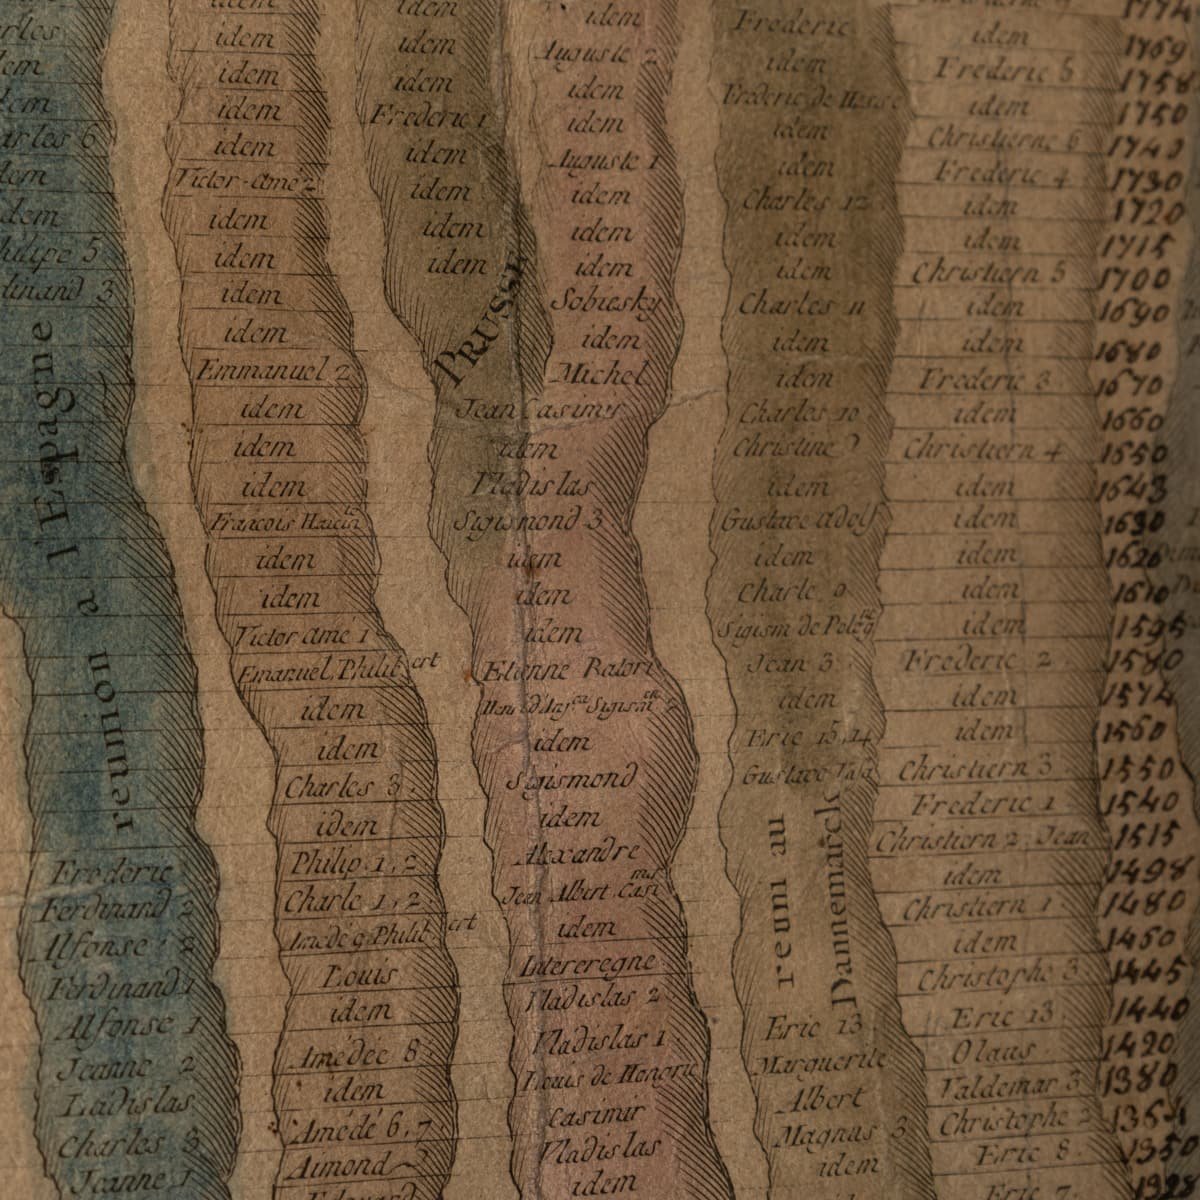 idem
idem
idem
idem
idem
Victor-Amé 2
idem
idem
idem
idem
Emmanuel 2
idem
idem
idem
idem
idem
Victor amé 1
Emanuel Philibert
idem
idem
Charles 3
idem
Philip 1, 2
Charle 1, 2
Louis
idem
Amédée 8
idem
Amédé 6, 7
Aimond
Charles 6
Philipe 5
Ferdinand 3
reunion a l'Espagne
Frederic
Ferdinand 2
Alfonse 2
Ferdinand 1
Alfonse 1
Jeanne 2
Ladislas
Charles 3
Jeanne 1
idem
idem
idem
Frederic 1
idem
idem
idem
idem
PRUSSE
idem
Auguste 2
idem
idem
Auguste 1
idem
idem
idem
Sobiesky
idem
Michel
Jean Casimir
idem
Vladislas
Sigismond 3
idem
idem
idem
Etienne Batori
idem
Sigismond
idem
Alexandre
Jean Albert. Casimir
idem
Intereregne
Vladislas 2
Vladislas 1
Louis de Hongrie
Casimir
Vladislas
idem
Frederic
idem
Frederic de Hesse
idem
idem
Charles 12
idem
idem
Charles 11
idem
idem
Charles 10
Christine
idem
Gustave adolf
idem
Charle 9
Sigism de Polog
Jean 3
idem
Eric 15, 14
Gustave Vasa
reuni au Dannemarck
Eric 13
Marguerite
Albert
Magnus 3
idem
idem
Frederic 5
idem
Christierne 6
Frederic 4
idem
idem
Christiern 5
idem
idem
Frederic 3
idem
Christiern 4
idem
idem
idem
idem
idem
Frederic 2
idem
idem
Christiern 3
Frederic 1
Christiern 2. Jean
idem
Christiern 1
idem
Christophe 3
Eric 13
Olaus
Valdemar 3
Christophe 2
Eric 8
Eric 7
1774
1769
1758
1750
1740
1730
1720
1715
1700
1690
1680
1670
1660
1650
1643
1630
1620
1610
1595
1580
1574
1560
1550
1540
1515
1498
1480
1450
1445
1440
1420
1380
1354
1350